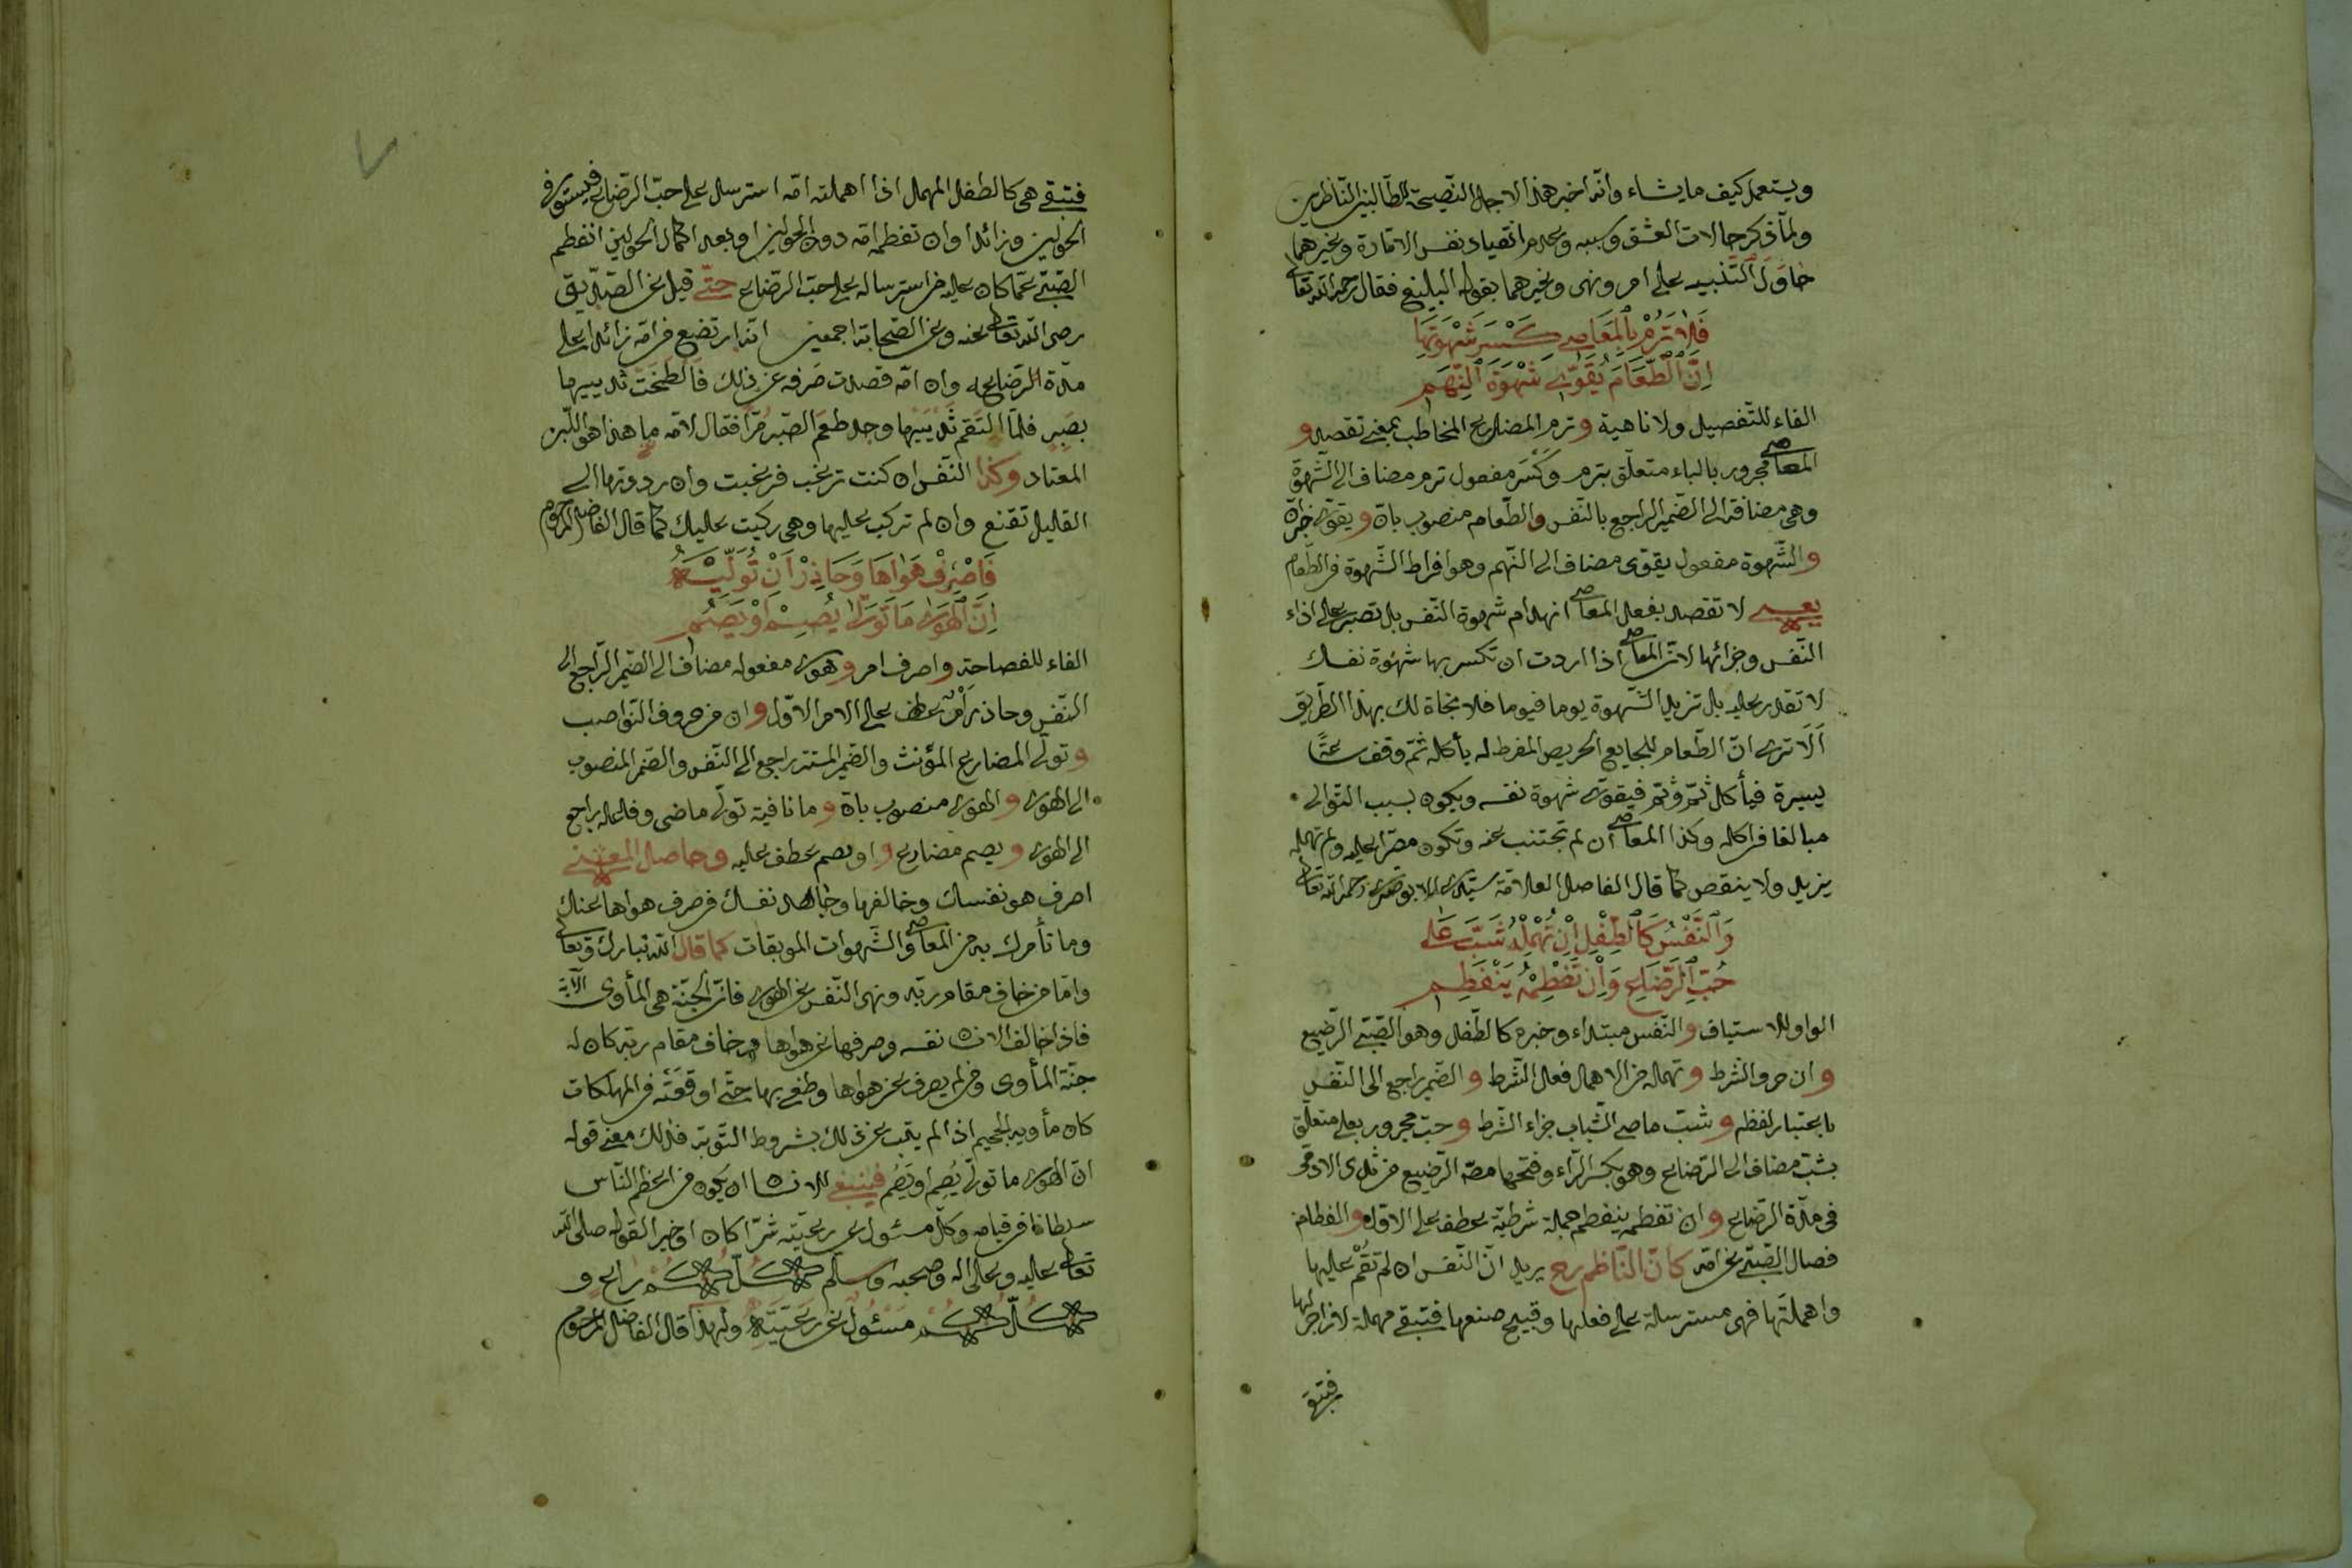 ويستعمل كيف ما يشاء وانه اخبر هذا لاجل النصيحة للطالبين الناظرين
ولما ذكر حالات العشق وسببه وعدم انقياد نفس الامارة وغيرهما
حاول التنبيه على امر ونهى وغيرهما بقوله البليغ فقال رحمه الله تعالى
فَلَا تَرُمْ بِالْمَعَاصِي كَسْرَ شَهْوَتِهَا
اِنَّ الطَّعَامَ يُقَوِّي شَهْوَةَ النَّهِمِ
الفاء للتفصيل ولا ناهية وترم المضارع المخاطب بمعنى تقصد و
المعاصى مجرور بالباء متعلق بترم وكسر مفعول ترم مضاف الى الشهوة
وهى مضافة الى الضمير الراجع بالنفس والطعام منصوب بان ويقوى خبران
والشهوة مفعول يقوى مضاف الى النهم وهو افراط الشهوة فى الطعام
يعنى لا تقصد بفعل المعاصى انهدام شهوة النفس بل تصبر على اذاء
النفس وجزائها لان المعاصى اذا اردت ان تكسر بها شهوة نفسك
لا تقدر عليه بل تزيد الشهوة يوما فيوما فلا نجاة لك بهذا الطريق
اَلا ترى ان الطعام للجايع الحريص المفرط له يأكله ثم وقف ساعة
يسيرة فيأكل ثم وثم فيقوى شهوة نفسه ويكون بسبب التوالى
مبالغا فى اكله وكذا المعاصى ان لم تجتنب عنه وتكون مصرا عليه ولم تهمله
يزيد ولا ينقص كما قال الفاضل العلامة سيدى البوصرى رحمه الله تعالى
وَالنَّفْسُ كَالطِّفْلِ اِنْ تُهْمِلْهُ شَبَّ عَلٰى
حُبِّ الرَّضَاعِ وَاِنْ تَفْطِمْهُ يَنْفَطِمِ
الواو للاستيناف والنفس مبتداء وخبره كالطفل وهو الصبى الرضيع
وان حرف الشرط وتهمله من الاهمال فعل الشرط والضمير راجع الى النفس
باعتبار لفظه وشب ماضى الشباب جزاء الشرط وحب مجرور بعلى متعلق
بشب مضاف الى الرضاع وهو بكسر الراء وفتحها مصه الرضيع من ثدى الادمى
فى مدة الرضاع وان تفطمه ينفطم جملة شرطية عطف على الاول والفطام
فصال الصبى عن امه كان الناظم رح يريد ان النفس ان لم تقم عليها
واهملتها فهى مسترسلة على فعلها وقبيح صنعها فتبقى مهملة لا زاجر لها
فتبقى
فتبقى هى كالطفل المهمل اذا اهملته امه استرسل على حب الرضاع فيستوفى
الحولين وزائدا وان تفطمه امه دون الحولين او بعد اكمال الحولين انفطم
الصبى عما كان عليه من استرساله على حب الرضاع حتى قيل عن الصديق
رضى الله تعالى عنه وعن الصحابة اجمعين انه ارتضع من امه زائدا على
مدة الرضاع وان امه قصدت صرفه عن ذلك فالطخت ثدييها
بصبر فلما التقم ثدييها وجد طعم الصبر مرا فقال لامه ما هذا هو اللبن
المعتاد وكذا النفس ان كنت ترغب فرغبت وان رددتها الى
القليل تقنع وان لم تركب عليها وهى ركبت عليك كما قال الفاضل المرحوم
فَاصْرِفْ هَوَاهَا وَحَاذِرْ اَنْ تُوَلِّيَهُ
اِنَّ الْهَوٰى مَا تَوَلّٰى يُصْمِ اَوْ يَصِمِ
الفاء للفصاحة واصرف امر وهوى مفعوله مضاف الى الضمير الراجع الى
النفس وحاذر امر عطف على الامر الاول وان من حروف النواصب
وتولى المضارع المؤنث والضمير المستتر راجع الى النفس والضمير المنصوب
الى الهوى والهوى منصوب بان وما نافية تولى ماضى وفاعله راجع
الى الهوى ويصم مضارع واو يصم عطف عليه وحاصل المعنى
اصرف هو نفسك وخالفها وجاهد نفسك فى صرف هواها عنك
وما تأمرك به من المعاصى والشهوات الموبقات كما قال الله تبارك وتعالى
واما من خاف مقام ربه ونهى النفس عن الهوى فان الجنة هى المأوى الآية
فاذا خالف الانسان نفسه وصرفها عن هواها وخاف مقام ربه كان له
جنة المأوى ومن لم يصرف عن هواها وطغى بها حتى اوقعته فى المهلكات
كان مأويه الجحيم اذا لم يتب عن ذلك بشروط التوبة فذلك معنى قوله
ان الهوى ما تولى يُصم او يَصِم فينبغى للانسان ان يكون من اعظم الناس
سلطانا فى قيامه وكل مسئول عن رعيته شرا كان او خيرا لقوله صلى الله
تعالى عليه وعلى اله وصحبه وسلم كُلُّكُمْ رَاعٍ و
كُلُّكُمْ مَسْئُولٌ عَنْ رَعِيَّتِهِ ولهذا قال الفاضل المرحوم